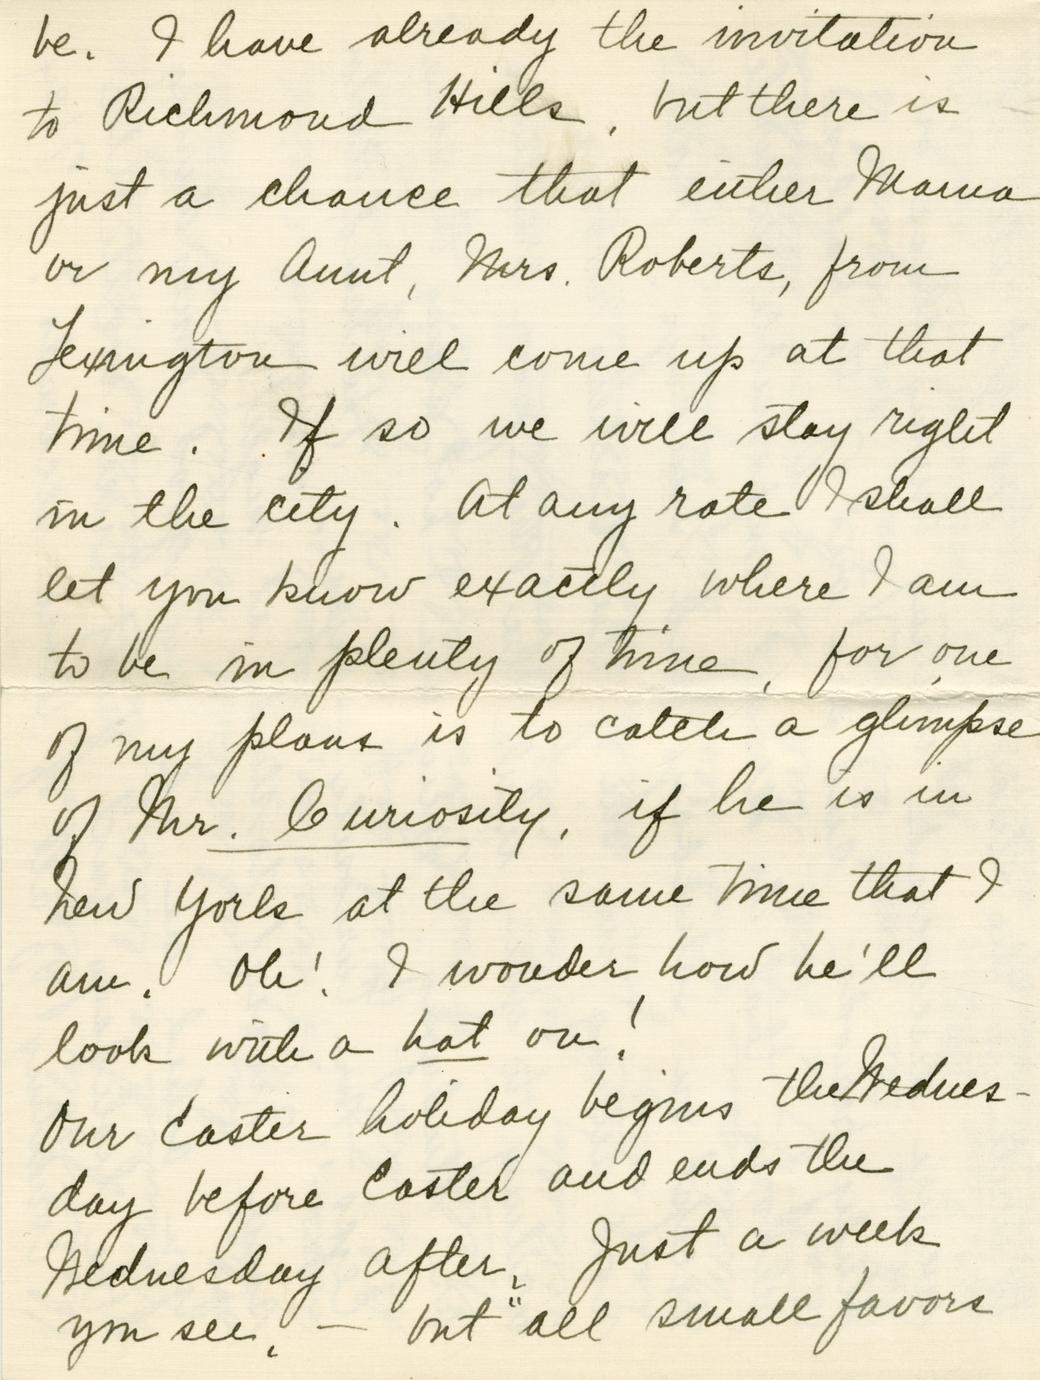 be. I have already the invitation
to Richmond Hills, but there is
just a chance that either Mama
or my Aunt, Mrs. Roberts, from
Lexington will come up at that
time. If so we will stay right
in the city. At any rate I shall
let you know exactly where I am
to be in plenty of time, for one
of my plans is to catch a glimpse
of Mr. Curiosity, if he is in
New York at the same time that I
am. Oh! I wonder how he'll
look with a hat on!
Our Easter holiday begins the Wednes-
day before Easter and ends the
Wednesday after. Just a week
you see, — but "all small favors